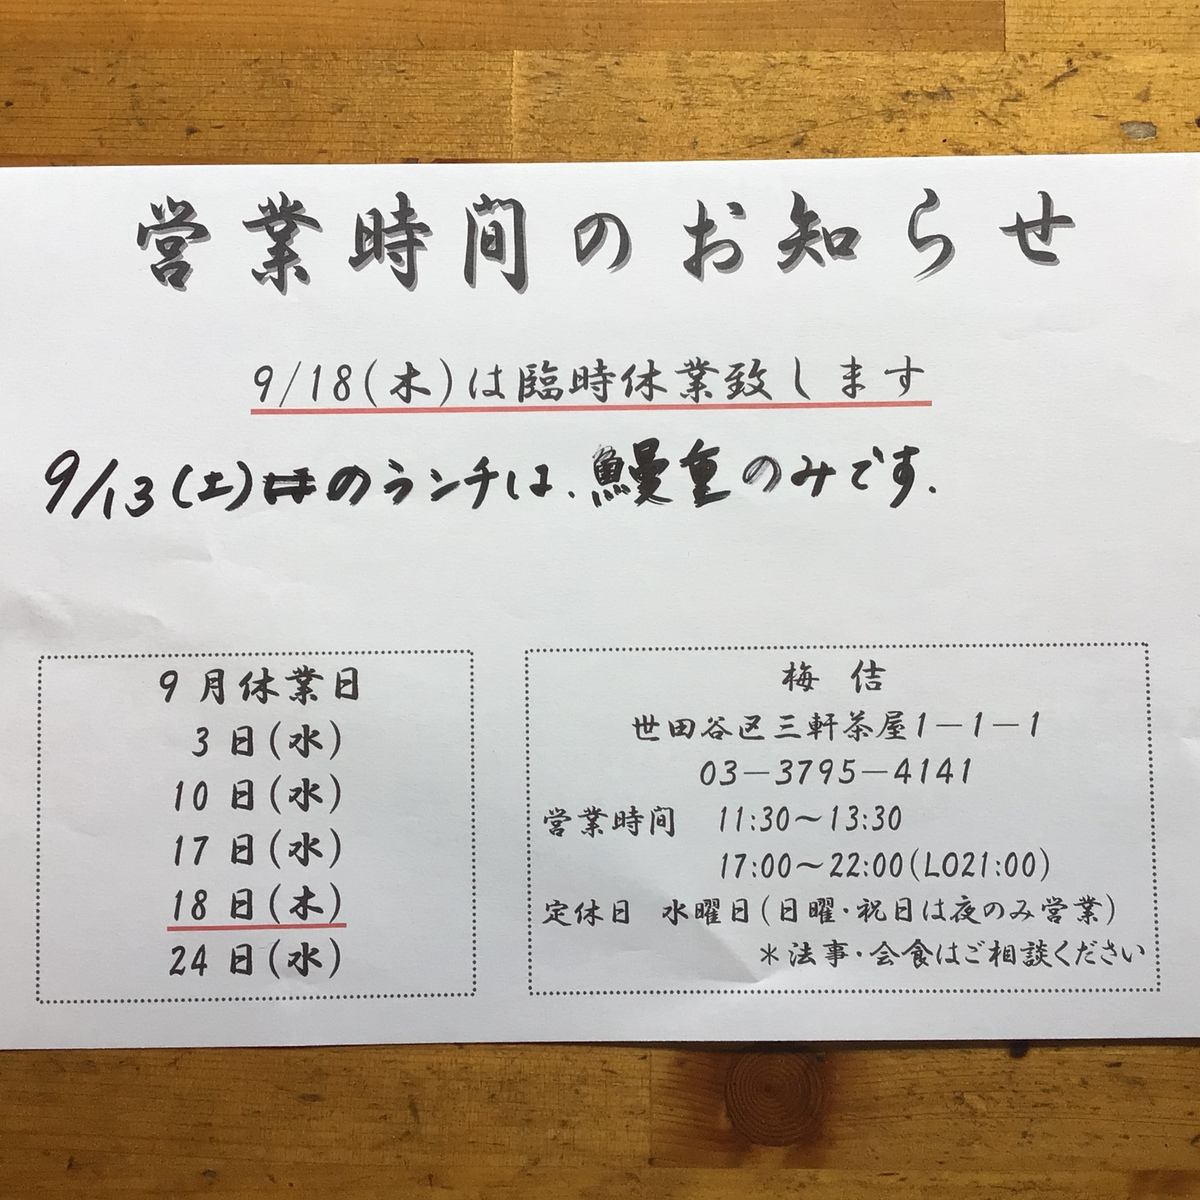 営業時間のお知らせ
9/18(木)は臨時休業致します
9/13(土)のランチは、鰻重のみです.
9月休業日
3日(水)
10日(水)
17日(水)
18日(木)
24日(水)
梅佶
世田谷区三軒茶屋1-1-1
03-3795-4141
営業時間 11:30～13:30
17:00～22:00(LO21:00)
定休日 水曜日(日曜・祝日は夜のみ営業)
＊法事・会食はご相談ください